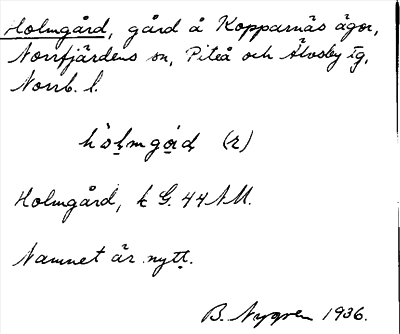 Holmgård, gård å Kopparnäs ägor,
Norrfjärdens sn, Piteå och Älvsby tg,
Norrb. l.
hòl̥mgo̥i̥d̥ (r)
Holmgård, k G. 44 NM.
Namnet är nytt.
B. Nygren 1936.